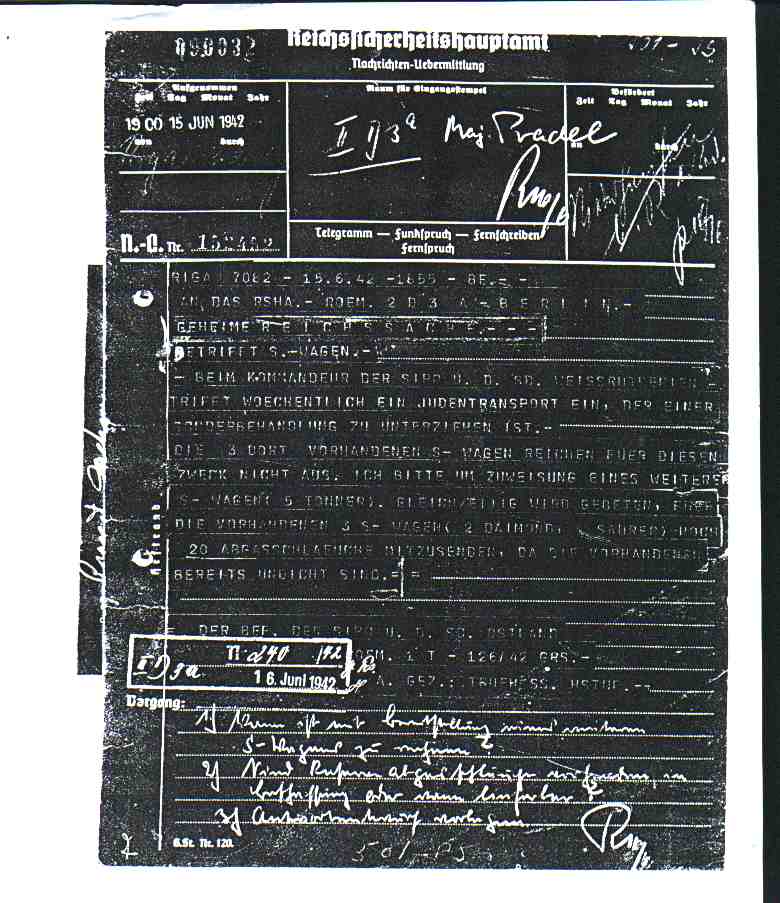 090032
Reichssicherheitshauptamt
Nachrichten-Uebermittlung
Aufgenommen
Zeit Tag Monat Jahr
1900 15 JUN 1942
von durch
Raum für Eingangsstempel
II D 3a Maj. Pradel
Befördert
Zeit Tag Monat Jahr
an durch
N.-Ü. Nr. 152452
Telegramm — Funkspruch — Fernschreiben
Fernspruch
RIGA 7082 - 15.6.42 -1855 - BE.- -
AN DAS RSHA.- ROEM. 2 D 3 A - B E R L I N.-
GEHEIME R E I C H S S A C H E.- - -
BETRIFFT S.-WAGEN.-
- BEIM KOMMANDEUR DER SIPO U. D. SD. WEISSRUTHENIEN -
TRIFFT WOECHENTLICH EIN JUDENTRANSPORT EIN, DER EINER
SONDERBEHANDLUNG ZU UNTERZIEHEN IST.-
DIE 3 DORT VORHANDENEN S- WAGEN REICHEN FUER DIESEN
ZWECK NICHT AUS. ICH BITTE UM ZUWEISUNG EINES WEITERE
S- WAGEN( 5 TONNER). GLEICHZEITIG WIRD GEBETEN, FUER
DIE VORHANDENEN 3 S- WAGEN( 2 DAIMOND, SAURER) NOCH
20 ABGASSCHLAEUCHE MITZUSENDEN, DA DIE VORHANDENEN
BEREITS UNDICHT SIND.= =
DER BEF. DER SIPO U. D. SD. OSTLAND
ROEM. 1 T - 126/42 GRS.-
II D 3a N. 240/42
16. Juni 1942
A. GEZ.: TRUEHESS. HSTUF.--
Vorgang:
1) Wann ist mit Bereitstellung eines weiteren
S-Wagens zu rechnen?
2) Sind Reserve abgasschläuche vorhanden, in
Beschaffung oder wann lieferbar?
3) Antwortentwurf vorlegen
G.St. Nr. 120.
501-PS